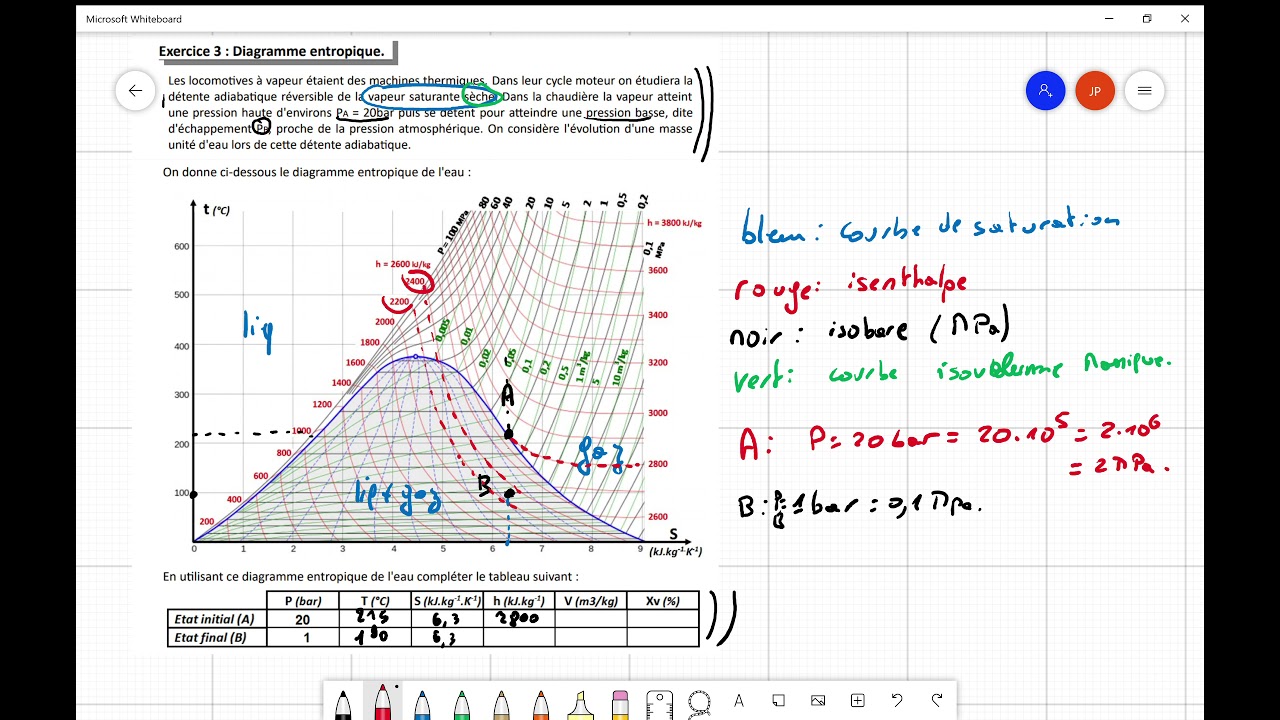 Microsoft Whiteboard
Exercice 3 : Diagramme entropique.
Les locomotives à vapeur étaient des machines thermiques. Dans leur cycle moteur on étudiera la
détente adiabatique réversible de la vapeur saturante sèche. Dans la chaudière la vapeur atteint
une pression haute d'environs PA = 20bar puis se détent pour atteindre une pression basse, dite
d'échappement PB, proche de la pression atmosphérique. On considère l'évolution d'une masse
unité d'eau lors de cette détente adiabatique.
JP
On donne ci-dessous le diagramme entropique de l'eau :
t (°C)
P = 100 MPa 80 60 40 20 10 5 2 1 0,5 0,2
0,1 MPa
h = 3800 kJ/kg
h = 2600 kJ/kg
600 500 400 300 200 100
2400 2200 2000 1800 1600 1400 1200 1000 800 600 400 200
3600 3400 3200 3000 2800 2600
0,005 0,01 0,02 0,05 0,1 0,2 0,5 1 m³/kg 5 10 m³/kg
liq
A
gaz
liq+gaz
B
0 1 2 3 4 5 6 7 8 9
S
(kJ.kg⁻¹·K⁻¹)
bleu : courbe de saturation
rouge : isenthalpe
noir : isobare (MPa)
vert : courbe
A : P = 20 bar = 20.10⁵ = 2.10⁶
= 2 MPa.
B : PB = 1 bar = 0,1 MPa.
En utilisant ce diagramme entropique de l'eau compléter le tableau suivant :
P (bar) T (°C) S (kJ.kg⁻¹.K⁻¹) h (kJ.kg⁻¹) V (m3/kg) Xv (%)
Etat initial (A) 20 215 6,3 2800
Etat final (B) 1 100 6,3
A